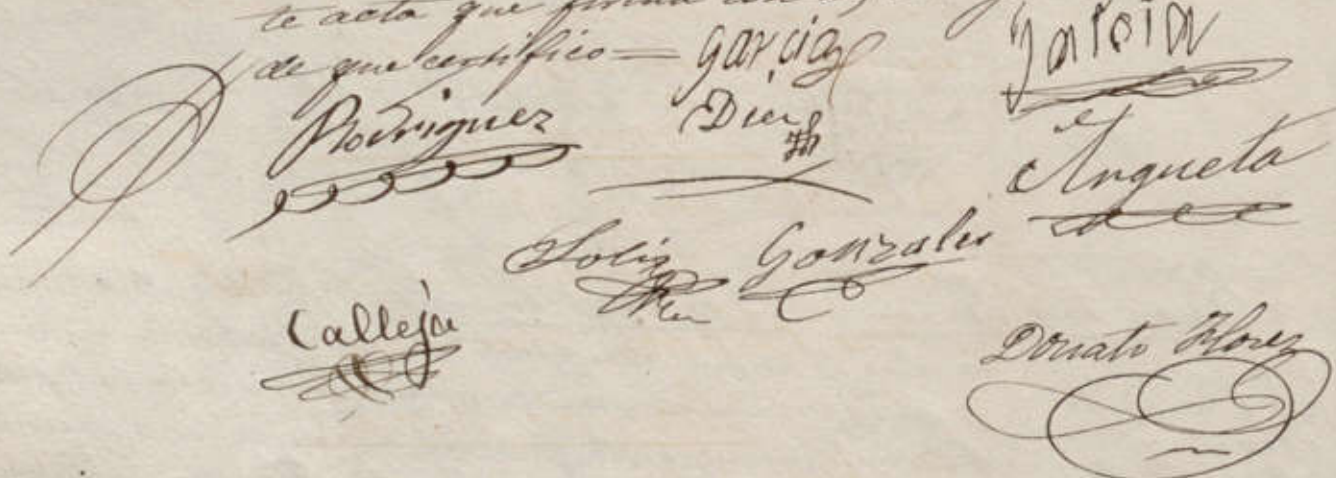 te acta que firma
de que certifico = Garcia Garcia
Rodriguez Diez Argueta
Solis Gonzalez
Calleja
Donato Florez